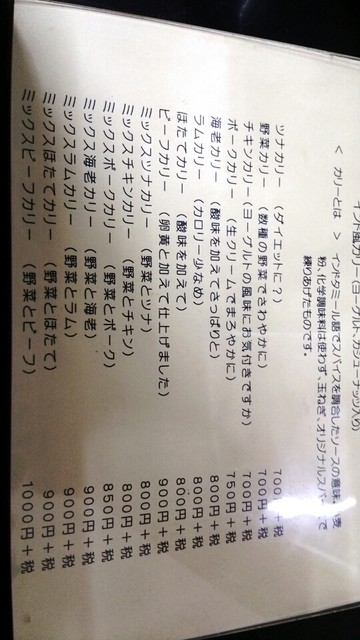 インド風カリー(ヨーグルト、カシューナッツ入り)
< カリーとは > インドタミール語でスパイスを調合したソースの意味、小麦
粉、化学調味料は使わず、玉ねぎ、オリジナルスパイスで
練りあげたものです。
ツナカリー (ダイエットに?) 700円+税
野菜カリー (数種の野菜でさわやかに) 700円+税
チキンカリー(ヨーグルトの風味にお気付きですか) 700円+税
ポークカリー (生クリームでまろやかに) 750円+税
海老カリー (酸味を加えてさっぱりと) 800円+税
ラムカリー (カロリー少なめ) 800円+税
ほたてカリー (酸味を加えて) 800円+税
ビーフカリー (卵黄と加えて仕上げました) 900円+税
ミックスツナカリー (野菜とツナ) 800円+税
ミックスチキンカリー (野菜とチキン) 800円+税
ミックスポークカリー (野菜とポーク) 850円+税
ミックス海老カリー (野菜と海老) 900円+税
ミックスラムカリー (野菜とラム) 900円+税
ミックスほたてカリー (野菜とほたて) 900円+税
ミックスビーフカリー (野菜とビーフ) 1000円+税